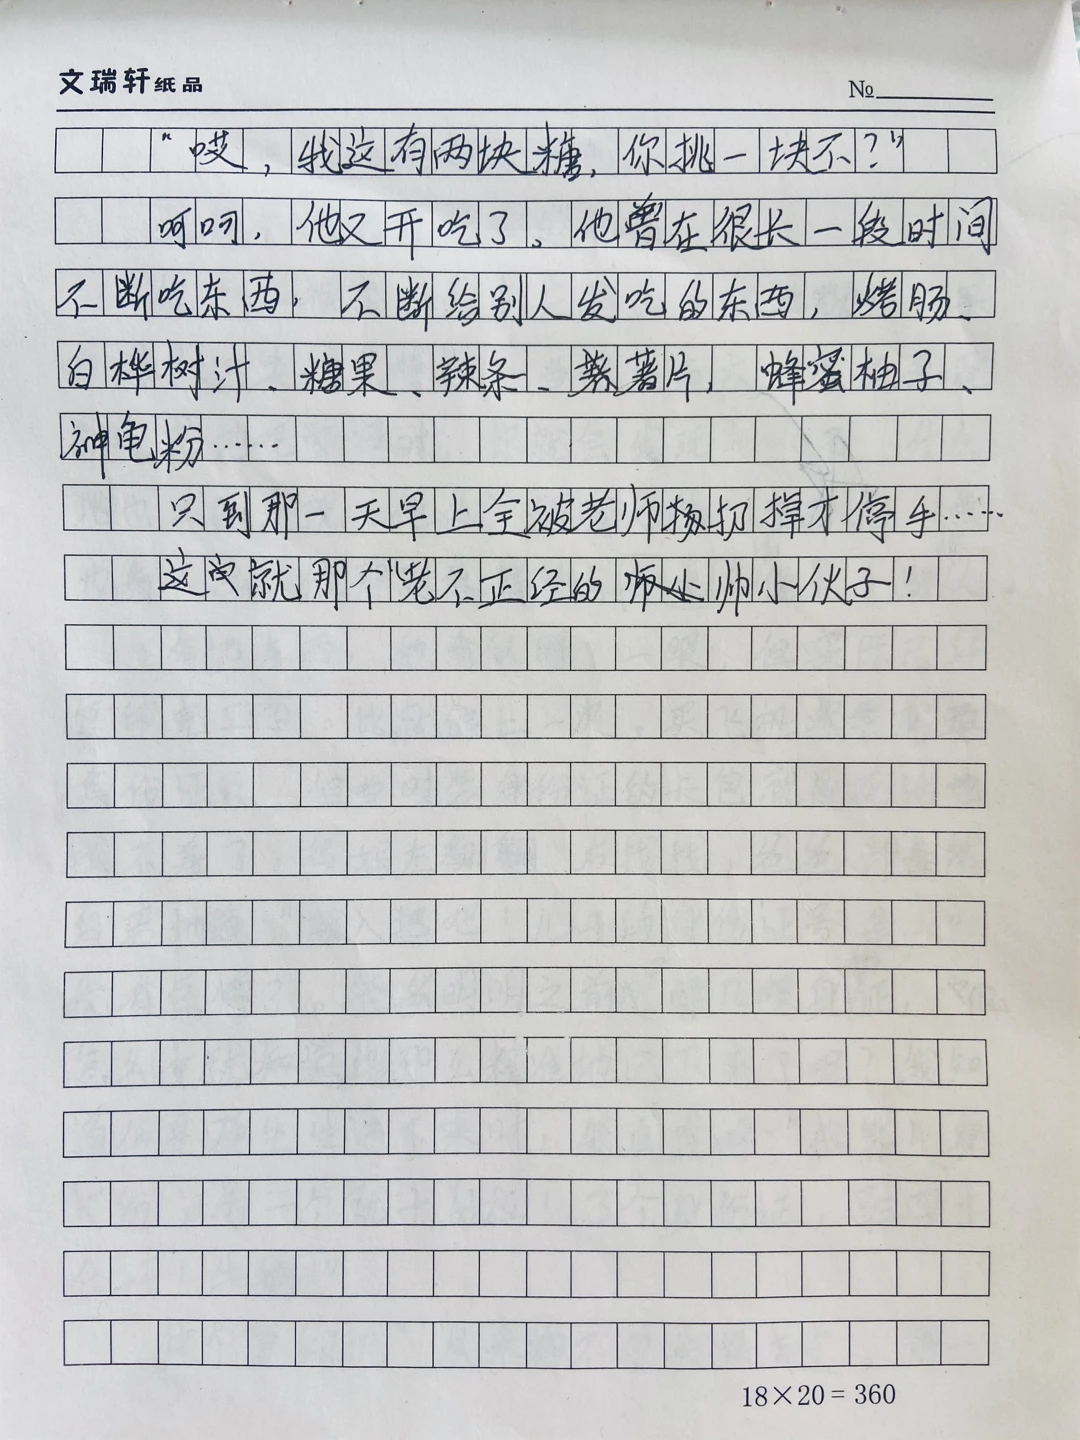 文瑞轩纸品
№
“哎，我这有两块糖，你挑一块不？”
呵呵，他又开吃了。他曾在很长一段时间
不断吃东西，不断给别人发吃的东西，烤肠、
白桦树汁、糖果、辣条、薯片，蜂蜜柚子、
神龟粉……
只到那一天早上全被老师扔掉才停手……
这就那个“老不正经的帅小伙子！
18×20=360